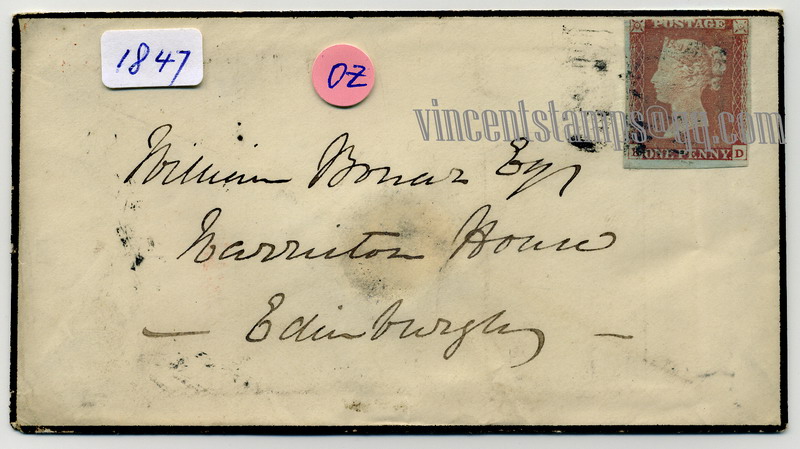 1847
OZ
POSTAGE
vincentstamps@qq.com
ONE PENNY D
William Bonar Esqr
Warriston House
— Edinburgh —